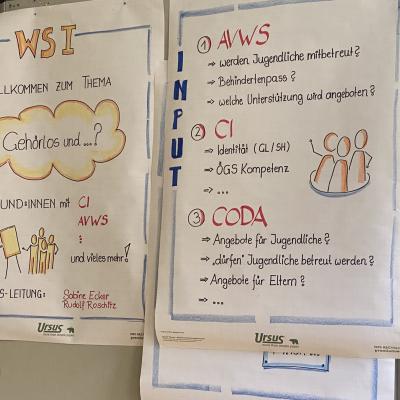 WS I
LLKOMMEN ZUM THEMA
Gehörlos und...?
UND:INNEN mit CI
AVWS
:
und vieles mehr!
S-LEITUNG: Sabine Ecker
Rudolf Roschitz
Ursus
INPUT
① AVWS
⇒ werden Jugendliche mitbetreut?
⇒ Behindertenpass?
⇒ welche Unterstützung wird angeboten?
② CI
⇒ Identität (GL/SH)
⇒ ÖGS Kompetenz
⇒ ...
③ CODA
⇒ Angebote für Jugendliche?
⇒ „dürfen" Jugendliche betreut werden?
⇒ Angebote für Eltern?
⇒ ...
Ursus